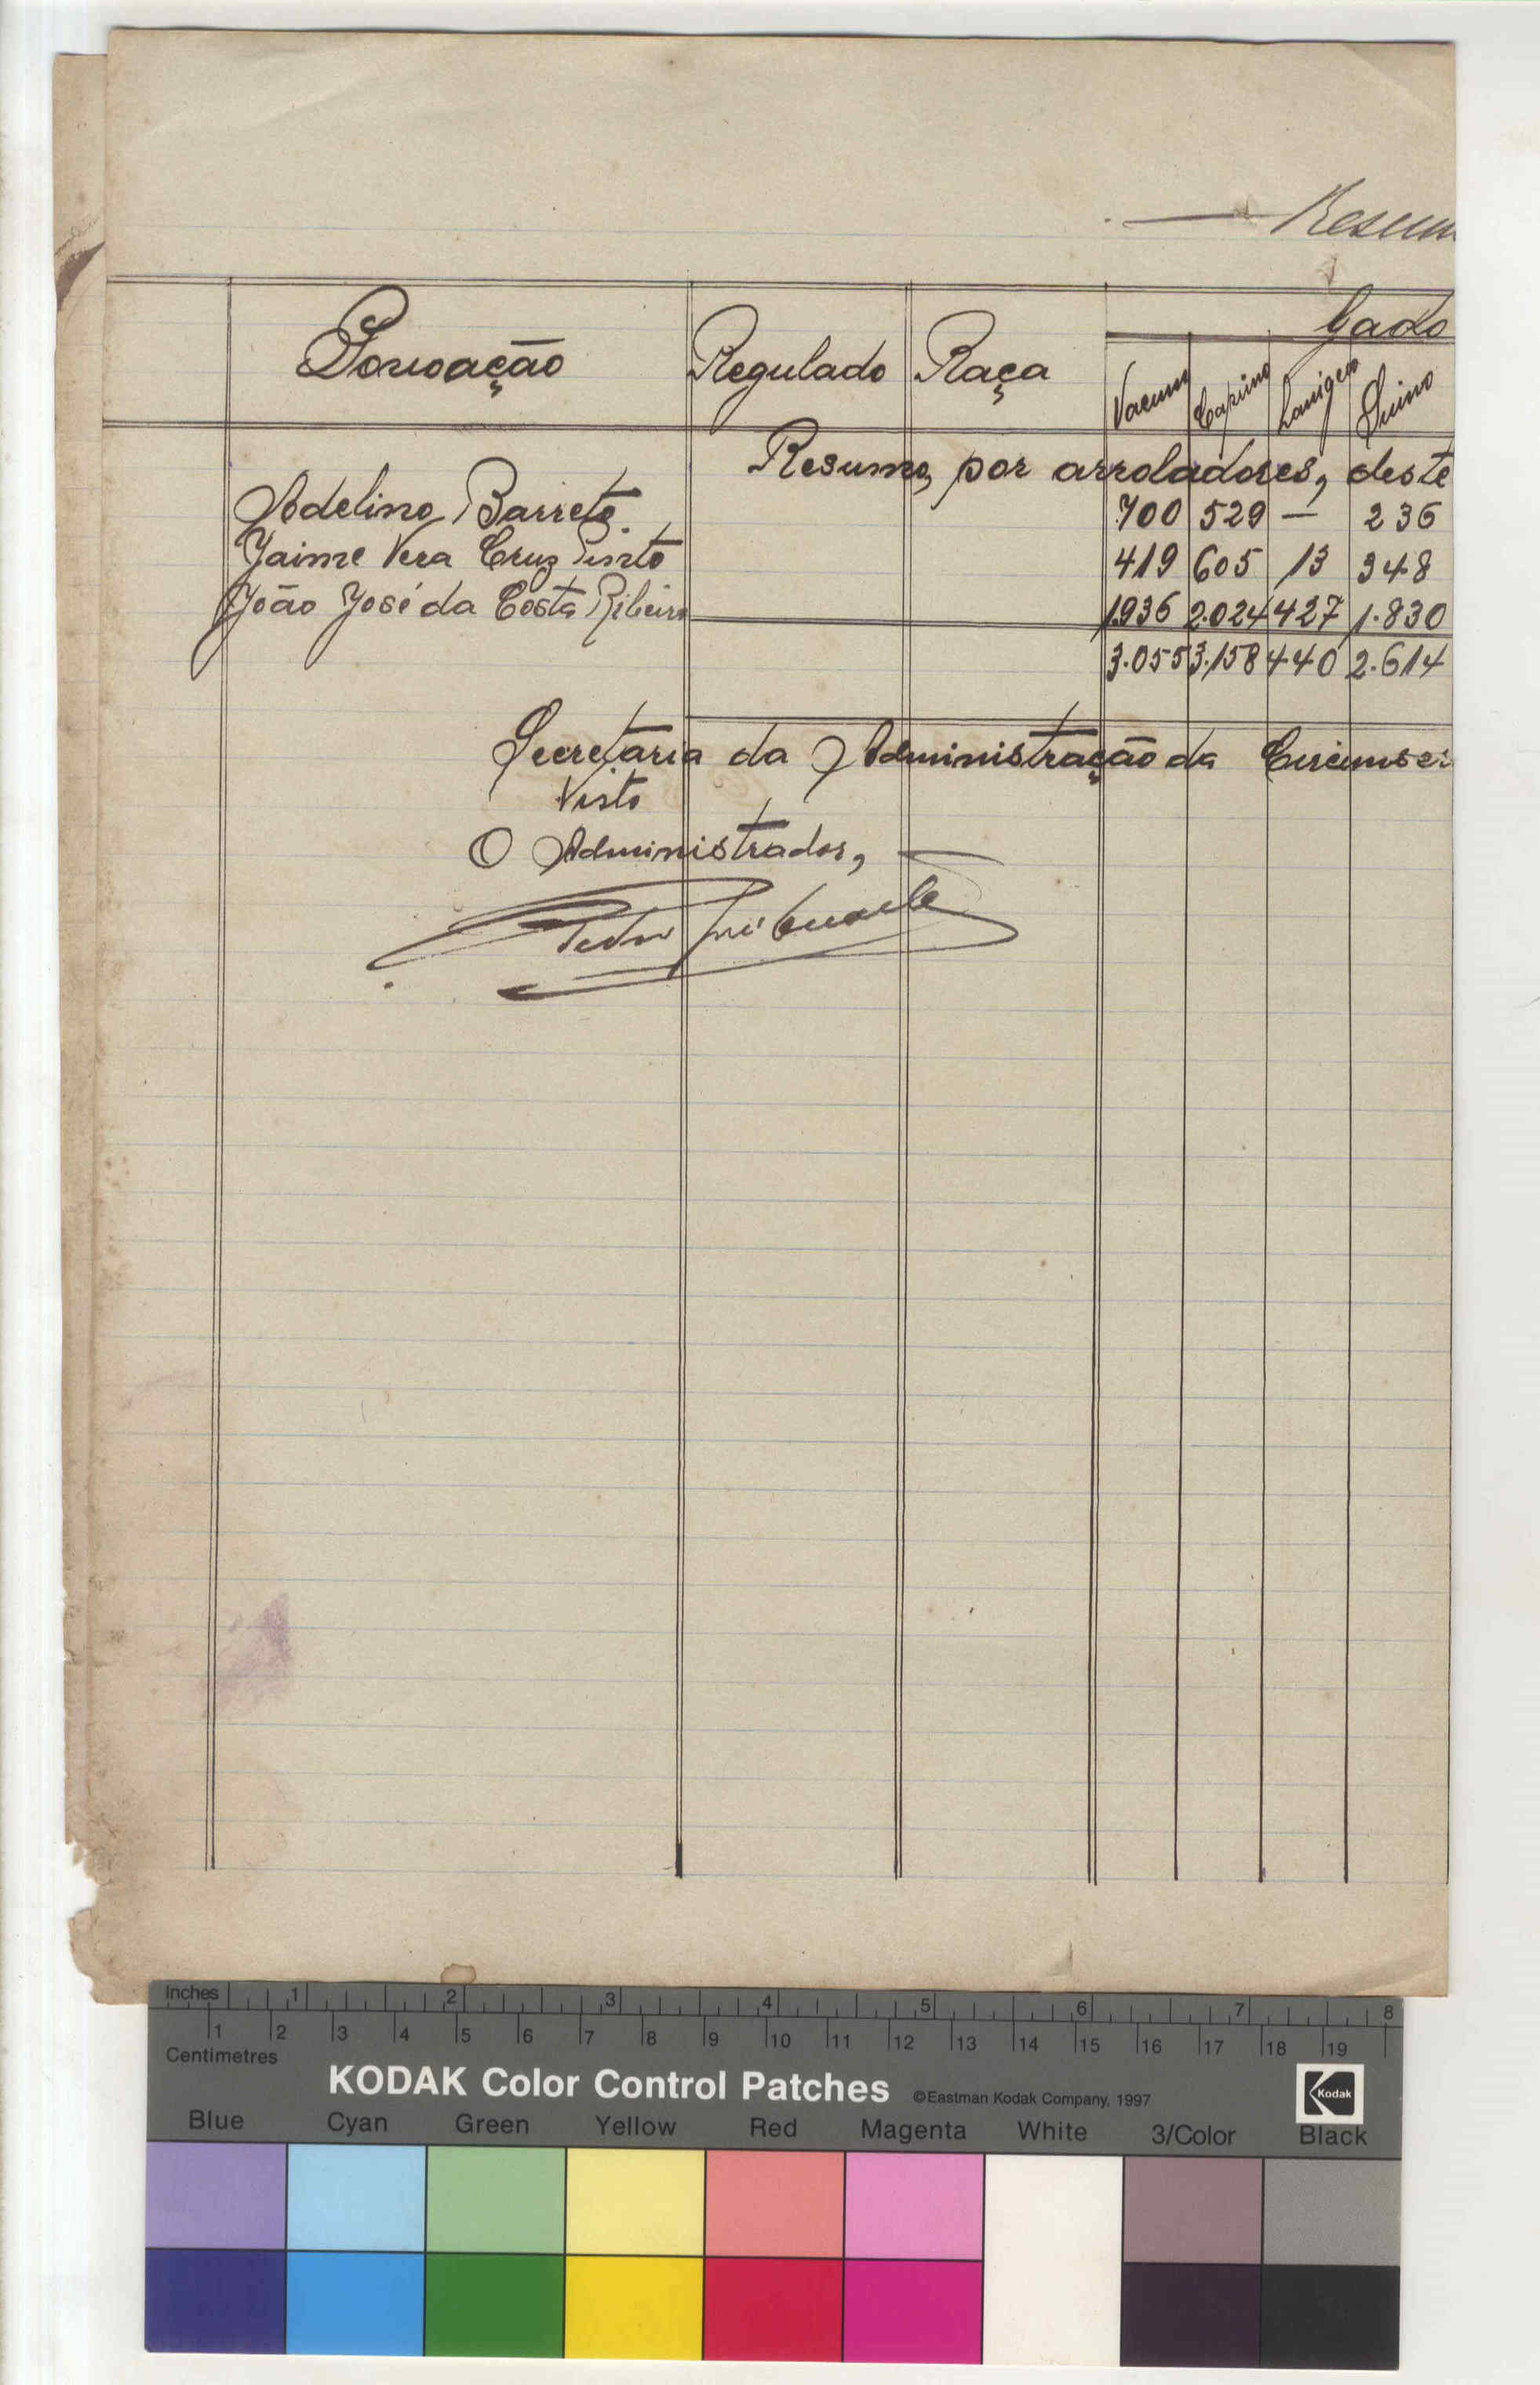 Resum
Povoação Regulado Raça Gado
Vacum Caprino Lanigero Suino
Resumo, por arroladores, deste
Adelino Barreto. 700 529 — 236
Jaime Vera Cruz Pinto 419 605 13 348
João José da Costa Ribeiro 1936 2.024 427 1.830
3.055 3.158 440 2.614
Secretaria da Administração da Circunscri
Visto
O Administrador,
Inches 1 2 3 4 5 6 7 8
1 2 3 4 5 6 7 8 9 10 11 12 13 14 15 16 17 18 19
Centimetres
KODAK Color Control Patches ©Eastman Kodak Company, 1997 Kodak
Blue Cyan Green Yellow Red Magenta White 3/Color Black